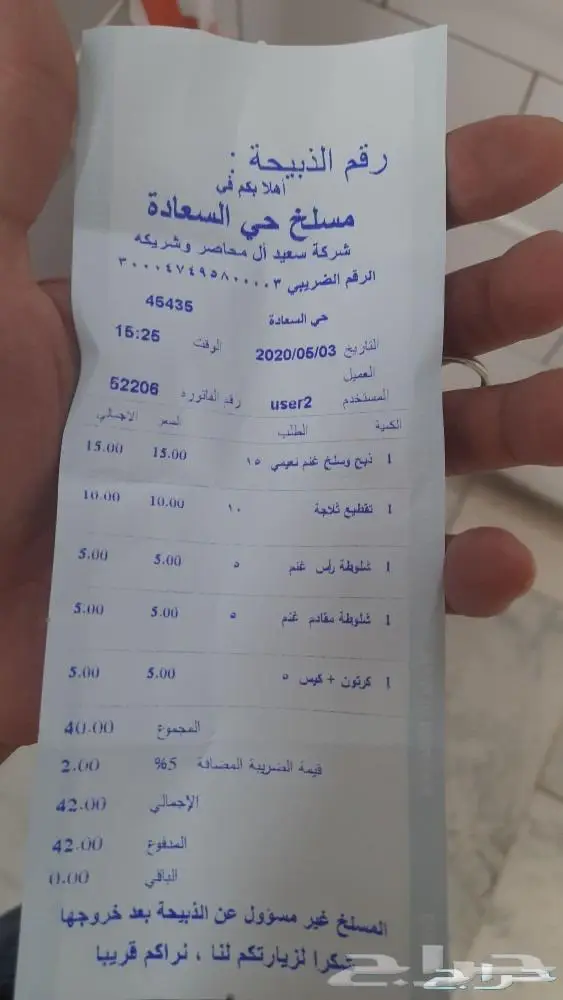 رقم الذبيحة :
أهلا بكم في
مسلخ حي السعادة
شركة سعيد آل محاصر وشريكه
الرقم الضريبي ٣٠٠٠٤٧٤٩٥٨٠٠٠٠٣
45435
حي السعادة
التاريخ 2020/05/03 الوقت 15:25
العميل
المستخدم user2 رقم الفاتورة 52206
الكمية الطلب السعر الاجمالي
1 ذبح وسلخ غنم نعيمي ١٥ 15.00 15.00
1 تقطيع ثلاجة ١٠ 10.00 10.00
1 شلوطة رأس غنم ٥ 5.00 5.00
1 شلوطة مقادم غنم ٥ 5.00 5.00
1 كرتون + كيس ٥ 5.00 5.00
المجموع 40.00
قيمة الضريبة المضافة 5% 2.00
الإجمالي 42.00
المدفوع 42.00
الباقي 0.00
المسلخ غير مسؤول عن الذبيحة بعد خروجها
شكرا لزيارتكم لنا ، نراكم قريبا
حراج